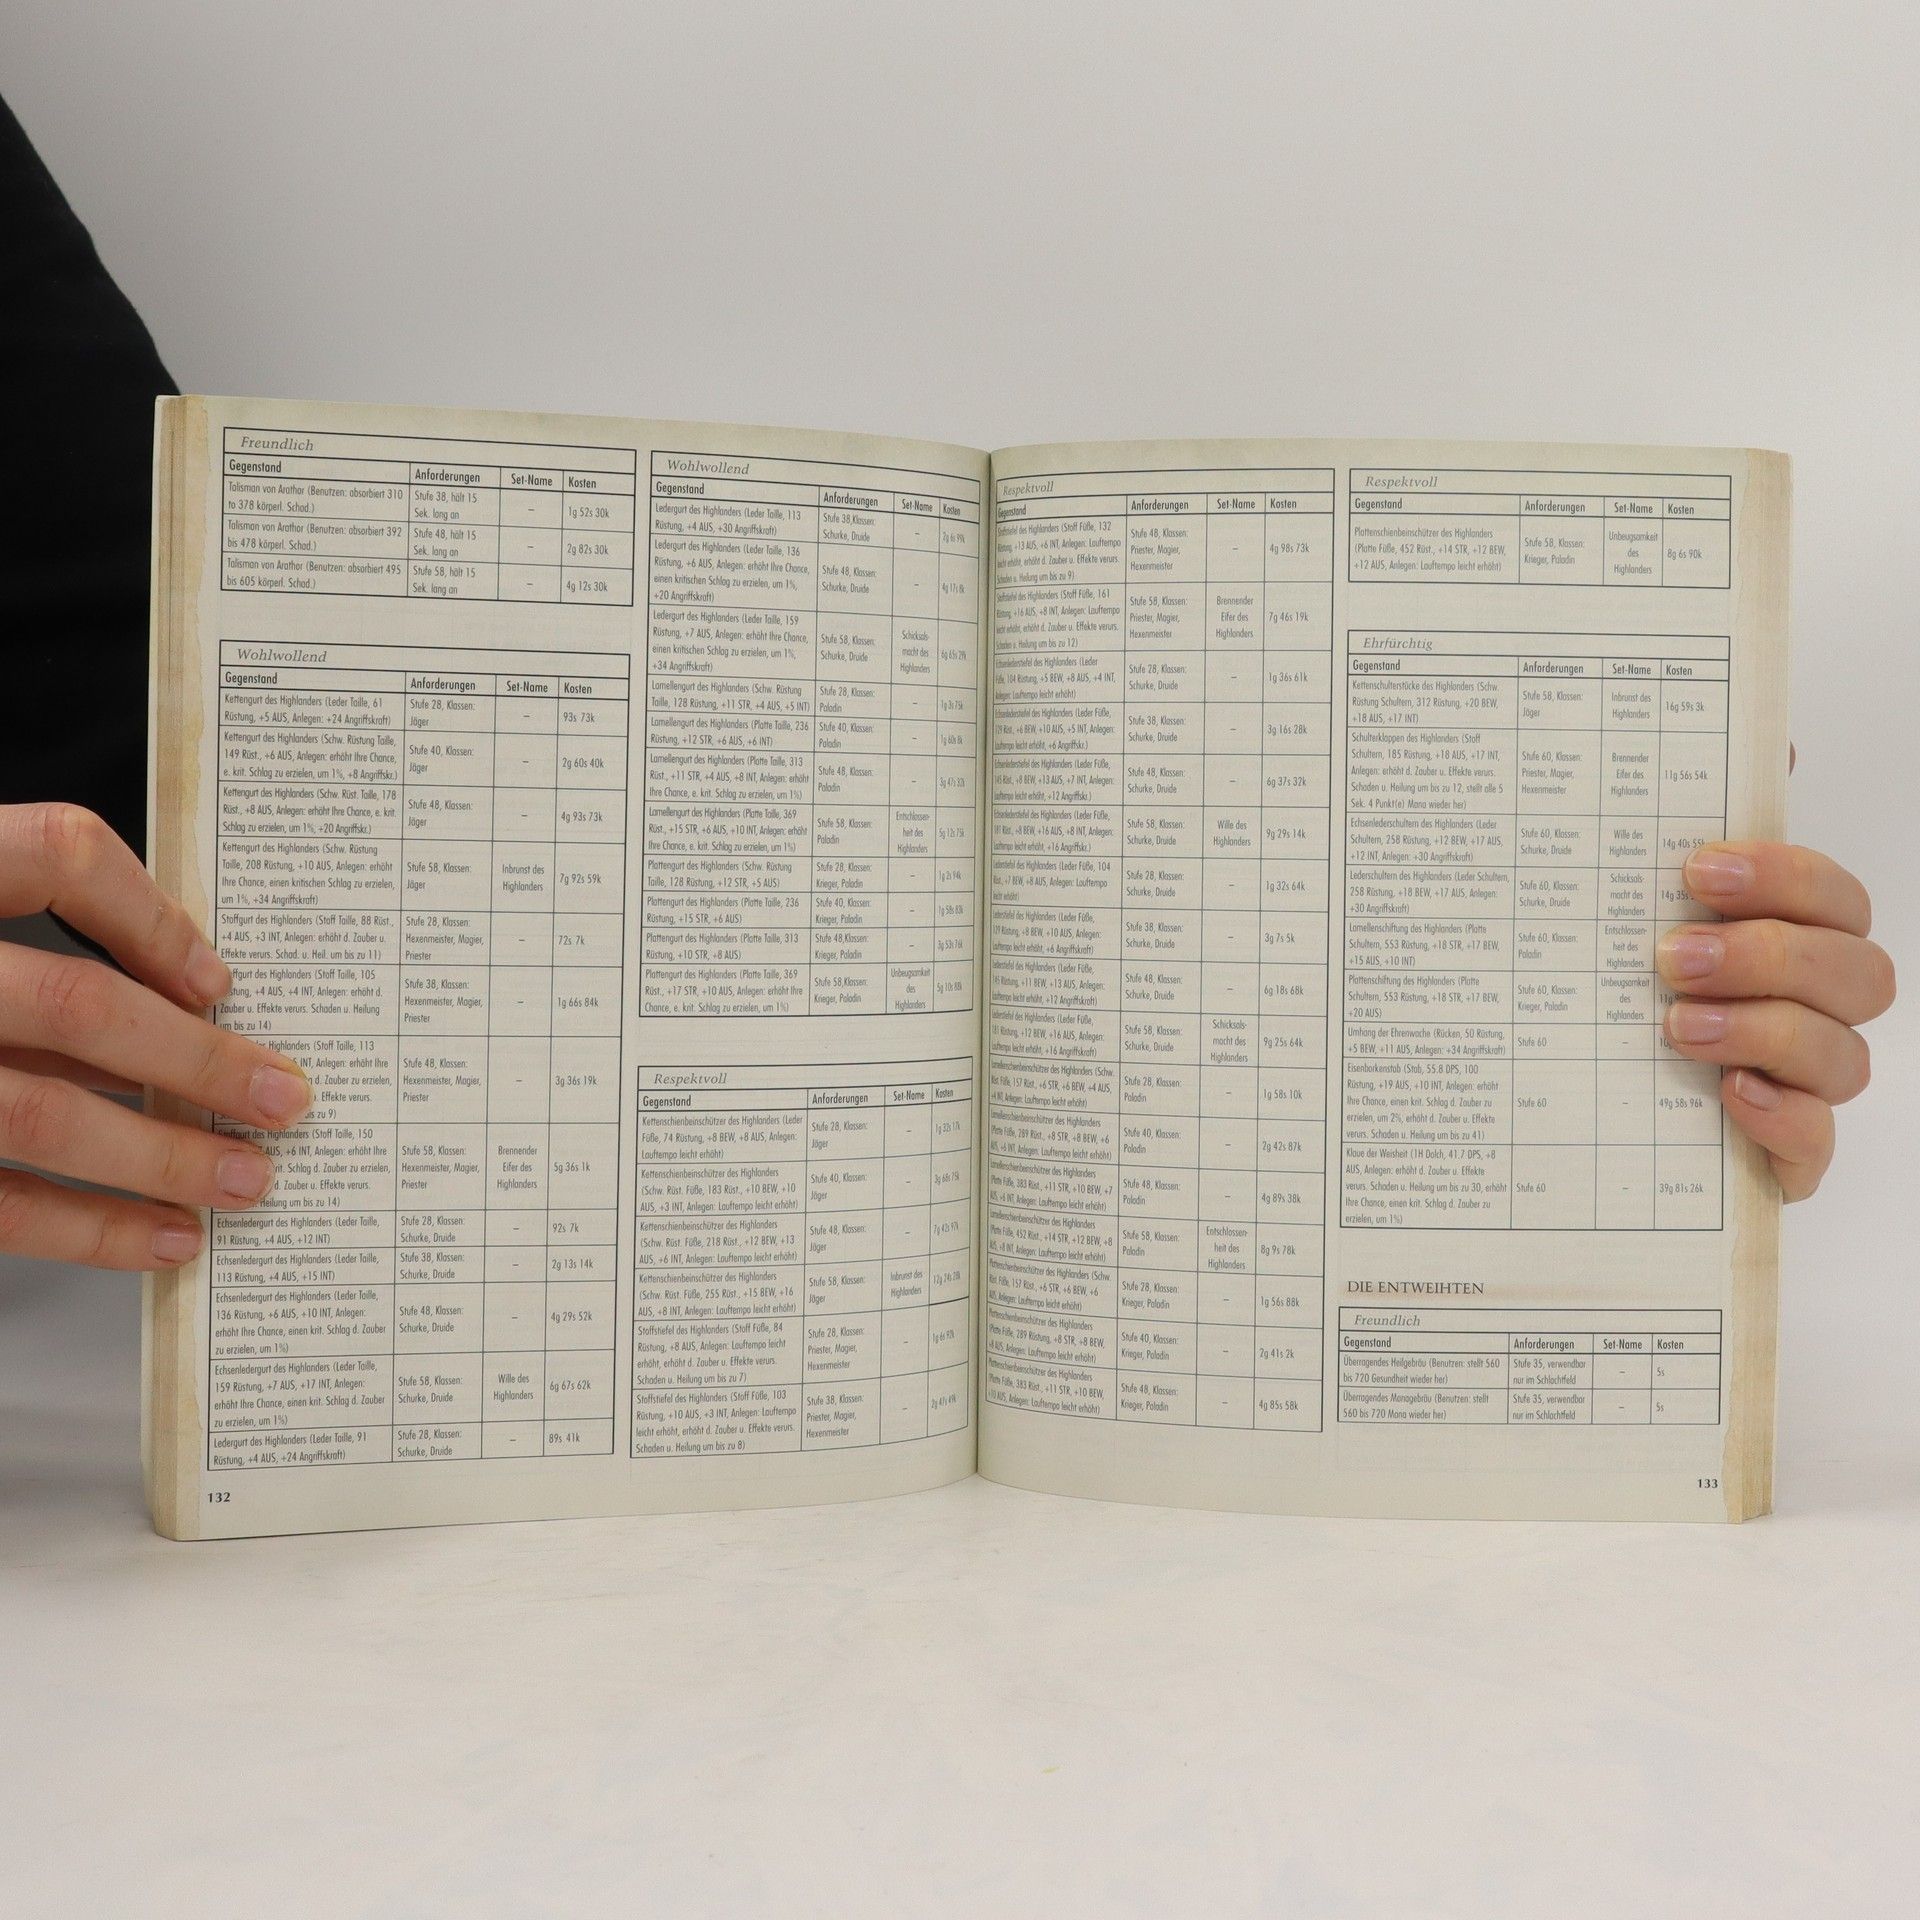 Freundlich
Gegenstand Anforderungen Set-Name Kosten
Talisman von Arathor (Benutzen: absorbiert 310 Stufe 38, hält 15
to 378 körperl. Schad.) Sek. lang an – 1g 52s 30k
Talisman von Arathor (Benutzen: absorbiert 392 Stufe 48, hält 15
bis 478 körperl. Schad.) Sek. lang an – 2g 82s 30k
Talisman von Arathor (Benutzen: absorbiert 495 Stufe 58, hält 15
bis 605 körperl. Schad.) Sek. lang an – 4g 12s 30k
Wohlwollend
Gegenstand Anforderungen Set-Name Kosten
Kettengurt des Highlanders (Leder Taille, 61 Stufe 28, Klassen:
Rüstung, +5 AUS, Anlegen: +24 Angriffskraft) Jäger – 93s 73k
Kettengurt des Highlanders (Schw. Rüstung Taille,
149 Rüst., +6 AUS, Anlegen: erhöht Ihre Chance, Stufe 40, Klassen:
e. krit. Schlag zu erzielen, um 1%, +8 Angriffskr.) Jäger – 2g 60s 40k
Kettengurt des Highlanders (Schw. Rüst. Taille, 178
Rüst., +8 AUS, Anlegen: erhöht Ihre Chance, e. krit. Stufe 48, Klassen:
Schlag zu erzielen, um 1%, +20 Angriffskr.) Jäger – 4g 93s 73k
Kettengurt des Highlanders (Schw. Rüstung
Taille, 208 Rüstung, +10 AUS, Anlegen: erhöht Stufe 58, Klassen: Inbrunst des
Ihre Chance, einen kritischen Schlag zu erzielen, Jäger Highlanders 7g 92s 59k
um 1%, +34 Angriffskraft)
Stoffgurt des Highlanders (Stoff Taille, 88 Rüst., Stufe 28, Klassen:
+4 AUS, +3 INT, Anlegen: erhöht d. Zauber u. Hexenmeister, Magier, – 72s 7k
Effekte verurs. Schad. u. Heil. um bis zu 11) Priester
des Highlanders (Stoff Taille, 105
+4 AUS, +4 INT, Anlegen: erhöht d. Stufe 38, Klassen:
Zauber u. Effekte verurs. Schaden u. Heilung Hexenmeister, Magier, – 1g 66s 84k
um bis zu 14) Priester
Highlanders (Stoff Taille, 113
INT, Anlegen: erhöht Ihre Stufe 48, Klassen:
d. Zauber zu erzielen, Hexenmeister, Magier, – 3g 36s 19k
Effekte verurs. Priester
zu 9)
Stoffgurt des Highlanders (Stoff Taille, 150
AUS, +6 INT, Anlegen: erhöht Ihre Stufe 58, Klassen: Brennender
Schlag d. Zauber zu erzielen, Hexenmeister, Magier, Eifer des 5g 36s 1k
d. Zauber u. Effekte verurs. Priester Highlanders
Heilung um bis zu 14)
Echsenledergurt des Highlanders (Leder Taille, Stufe 28, Klassen:
91 Rüstung, +4 AUS, +12 INT) Schurke, Druide – 92s 7k
Echsenledergurt des Highlanders (Leder Taille, Stufe 38, Klassen:
113 Rüstung, +4 AUS, +15 INT) Schurke, Druide – 2g 13s 14k
Echsenledergurt des Highlanders (Leder Taille,
136 Rüstung, +6 AUS, +10 INT, Anlegen: Stufe 48, Klassen:
erhöht Ihre Chance, einen krit. Schlag d. Zauber Schurke, Druide – 4g 29s 52k
zu erzielen, um 1%)
Echsenledergurt des Highlanders (Leder Taille,
159 Rüstung, +7 AUS, +17 INT, Anlegen: Stufe 58, Klassen: Wille des
erhöht Ihre Chance, einen krit. Schlag d. Zauber Schurke, Druide Highlanders 6g 67s 62k
zu erzielen, um 1%)
Ledergurt des Highlanders (Leder Taille, 91 Stufe 28, Klassen:
Rüstung, +4 AUS, +24 Angriffskraft) Schurke, Druide – 89s 41k
132
Wohlwollend
Gegenstand Anforderungen Set-Name Kosten
Ledergurt des Highlanders (Leder Taille, 113 Stufe 38,Klassen:
Rüstung, +4 AUS, +30 Angriffskraft) Schurke, Druide – 2g 6s 99k
Ledergurt des Highlanders (Leder Taille, 136
Rüstung, +6 AUS, Anlegen: erhöht Ihre Chance, Stufe 48, Klassen:
einen kritischen Schlag zu erzielen, um 1%, Schurke, Druide – 4g 17s 8k
+20 Angriffskraft)
Ledergurt des Highlanders (Leder Taille, 159
Rüstung, +7 AUS, Anlegen: erhöht Ihre Chance, Stufe 58, Klassen: Schicksals-
einen kritischen Schlag zu erzielen, um 1%, Schurke, Druide macht des 6g 65s 29k
+34 Angriffskraft) Highlanders
Lamellengurt des Highlanders (Schw. Rüstung Stufe 28, Klassen:
Taille, 128 Rüstung, +11 STR, +4 AUS, +5 INT) Paladin – 1g 3s 75k
Lamellengurt des Highlanders (Platte Taille, 236 Stufe 40, Klassen:
Rüstung, +12 STR, +6 AUS, +6 INT) Paladin – 1g 60s 8k
Lamellengurt des Highlanders (Platte Taille, 313
Rüst., +11 STR, +4 AUS, +8 INT, Anlegen: erhöht Stufe 48, Klassen:
Ihre Chance, e. krit. Schlag zu erzielen, um 1%) Paladin – 3g 47s 32k
Lamellengurt des Highlanders (Platte Taille, 369 Entschlossen-
Rüst., +15 STR, +6 AUS, +10 INT, Anlegen: erhöht Stufe 58, Klassen: heit des 5g 12s 75k
Ihre Chance, e. krit. Schlag zu erzielen, um 1%) Paladin Highlanders
Plattengurt des Highlanders (Schw. Rüstung Stufe 28, Klassen:
Taille, 128 Rüstung, +12 STR, +5 AUS) Krieger, Paladin – 1g 2s 94k
Plattengurt des Highlanders (Platte Taille, 236 Stufe 40, Klassen:
Rüstung, +15 STR, +6 AUS) Krieger, Paladin – 1g 58s 83k
Plattengurt des Highlanders (Platte Taille, 313 Stufe 48,Klassen:
Rüstung, +10 STR, +8 AUS) Krieger, Paladin – 3g 53s 76k
Plattengurt des Highlanders (Platte Taille, 369 Unbeugsamkeit
Rüst., +17 STR, +10 AUS, Anlegen: erhöht Ihre Stufe 58,Klassen: des 5g 10s 88k
Chance, e. krit. Schlag zu erzielen, um 1%) Krieger, Paladin Highlanders
Respektvoll
Gegenstand Anforderungen Set-Name Kosten
Kettenschienbeinschützer des Highlanders (Leder
Füße, 74 Rüstung, +8 BEW, +8 AUS, Anlegen: Stufe 28, Klassen:
Lauftempo leicht erhöht) Jäger – 1g 32s 17k
Kettenschienbeinschützer des Highlanders
(Schw. Rüst. Füße, 183 Rüst., +10 BEW, +10 Stufe 40, Klassen:
AUS, +3 INT, Anlegen: Lauftempo leicht erhöht) Jäger – 3g 68s 75k
Kettenschienbeinschützer des Highlanders
(Schw. Rüst. Füße, 218 Rüst., +12 BEW, +13 Stufe 48, Klassen:
AUS, +6 INT, Anlegen: Lauftempo leicht erhöht) Jäger – 7g 42s 97k
Kettenschienbeinschützer des Highlanders
(Schw. Rüst. Füße, 255 Rüst., +15 BEW, +16 Stufe 58, Klassen: Inbrunst des
AUS, +8 INT, Anlegen: Lauftempo leicht erhöht) Jäger Highlanders 12g 24s 28k
Stoffstiefel des Highlanders (Stoff Füße, 84
Rüstung, +8 AUS, Anlegen: Lauftempo leicht Stufe 28, Klassen:
erhöht, erhöht d. Zauber u. Effekte verurs. Priester, Magier, – 1g 6s 92k
Schaden u. Heilung um bis zu 7) Hexenmeister
Stoffstiefel des Highlanders (Stoff Füße, 103
Rüstung, +10 AUS, +3 INT, Anlegen: Lauftempo Stufe 38, Klassen:
leicht erhöht, erhöht d. Zauber u. Effekte verurs. Priester, Magier, – 2g 47s 49k
Schaden u. Heilung um bis zu 8) Hexenmeister
Respektvoll
Gegenstand Anforderungen Set-Name Kosten
Stoffstiefel des Highlanders (Stoff Füße, 132
Rüstung, +13 AUS, +6 INT, Anlegen: Lauftempo Stufe 48, Klassen:
leicht erhöht, erhöht d. Zauber u. Effekte verurs. Priester, Magier, – 4g 98s 73k
Schaden u. Heilung um bis zu 9) Hexenmeister
Stoffstiefel des Highlanders (Stoff Füße, 161
Rüstung, +16 AUS, +8 INT, Anlegen: Lauftempo Stufe 58, Klassen: Brennender
leicht erhöht, erhöht d. Zauber u. Effekte verurs. Priester, Magier, Eifer des 7g 46s 19k
Schaden u. Heilung um bis zu 12) Hexenmeister Highlanders
Echsenlederstiefel des Highlanders (Leder
Füße, 104 Rüstung, +5 BEW, +8 AUS, +4 INT, Stufe 28, Klassen:
Anlegen: Lauftempo leicht erhöht) Schurke, Druide – 1g 36s 61k
Echsenlederstiefel des Highlanders (Leder Füße,
129 Rüst., +6 BEW, +10 AUS, +5 INT, Anlegen: Stufe 38, Klassen:
Lauftempo leicht erhöht, +6 Angriffskr.) Schurke, Druide – 3g 16s 28k
Echsenlederstiefel des Highlanders (Leder Füße,
145 Rüst., +8 BEW, +13 AUS, +7 INT, Anlegen: Stufe 48, Klassen:
Lauftempo leicht erhöht, +12 Angriffskr.) Schurke, Druide – 6g 37s 32k
Echsenlederstiefel des Highlanders (Leder Füße,
181 Rüst., +8 BEW, +16 AUS, +8 INT, Anlegen: Stufe 58, Klassen: Wille des
Lauftempo leicht erhöht, +16 Angriffskr.) Schurke, Druide Highlanders 9g 29s 14k
Lederstiefel des Highlanders (Leder Füße, 104
Rüst., +7 BEW, +8 AUS, Anlegen: Lauftempo Stufe 28, Klassen:
leicht erhöht) Schurke, Druide – 1g 32s 64k
Lederstiefel des Highlanders (Leder Füße,
129 Rüstung, +8 BEW, +10 AUS, Anlegen: Stufe 38, Klassen:
Lauftempo leicht erhöht, +6 Angriffskraft) Schurke, Druide – 3g 7s 5k
Lederstiefel des Highlanders (Leder Füße,
145 Rüstung, +11 BEW, +13 AUS, Anlegen: Stufe 48, Klassen:
Lauftempo leicht erhöht, +12 Angriffskraft) Schurke, Druide – 6g 18s 68k
Lederstiefel des Highlanders (Leder Füße, Schicksals-
181 Rüstung, +12 BEW, +16 AUS, Anlegen: Stufe 58, Klassen: macht des 9g 25s 64k
Lauftempo leicht erhöht, +16 Angriffskraft) Schurke, Druide Highlanders
Lamellenschienbeinschützer des Highlanders (Schw.
Rüst. Füße, 157 Rüst., +6 STR, +6 BEW, +4 AUS, Stufe 28, Klassen:
+4 INT, Anlegen: Lauftempo leicht erhöht) Paladin – 1g 58s 10k
Lamellenschienbeinschützer des Highlanders
(Platte Füße, 289 Rüst., +8 STR, +8 BEW, +6 Stufe 40, Klassen:
AUS, +6 INT, Anlegen: Lauftempo leicht erhöht) Paladin – 2g 42s 87k
Lamellenschienbeinschützer des Highlanders
(Platte Füße, 383 Rüst., +11 STR, +10 BEW, +7 Stufe 48, Klassen:
AUS, +6 INT, Anlegen: Lauftempo leicht erhöht) Paladin – 4g 89s 38k
Lamellenschienbeinschützer des Highlanders Entschlossen-
(Platte Füße, 452 Rüst., +14 STR, +12 BEW, +8 Stufe 58, Klassen: heit des 8g 9s 78k
AUS, +8 INT, Anlegen: Lauftempo leicht erhöht) Paladin Highlanders
Plattenschienbeinschützer des Highlanders (Schw.
Rüst. Füße, 157 Rüst., +6 STR, +6 BEW, +6 Stufe 28, Klassen:
AUS, Anlegen: Lauftempo leicht erhöht) Krieger, Paladin – 1g 56s 88k
Plattenschienbeinschützer des Highlanders
(Platte Füße, 289 Rüst., +8 STR, +8 BEW, Stufe 40, Klassen:
+8 AUS, Anlegen: Lauftempo leicht erhöht) Krieger, Paladin – 2g 41s 2k
Plattenschienbeinschützer des Highlanders
(Platte Füße, 383 Rüst., +11 STR, +10 BEW, Stufe 48, Klassen:
+10 AUS, Anlegen: Lauftempo leicht erhöht) Krieger, Paladin – 4g 85s 58k
Respektvoll
Gegenstand Anforderungen Set-Name Kosten
Plattenschienbeinschützer des Highlanders Unbeugsamkeit
(Platte Füße, 452 Rüst., +14 STR, +12 BEW, Stufe 58, Klassen: des 8g 6s 90k
+12 AUS, Anlegen: Lauftempo leicht erhöht) Krieger, Paladin Highlanders
Ehrfürchtig
Gegenstand Anforderungen Set-Name Kosten
Kettenschulterstücke des Highlanders (Schw.
Rüstung Schultern, 312 Rüstung, +20 BEW, Stufe 58, Klassen: Inbrunst des
+18 AUS, +17 INT) Jäger Highlanders 16g 59s 3k
Schulterklappen des Highlanders (Stoff
Schultern, 185 Rüstung, +18 AUS, +17 INT, Stufe 60, Klassen: Brennender
Anlegen: erhöht d. Zauber u. Effekte verurs. Priester, Magier, Eifer des 11g 56s 54k
Schaden u. Heilung um bis zu 12, stellt alle 5 Hexenmeister Highlanders
Sek. 4 Punkt(e) Mana wieder her)
Echsenlederschultern des Highlanders (Leder
Schultern, 258 Rüstung, +12 BEW, +17 AUS, Stufe 60, Klassen: Wille des
+12 INT, Anlegen: +30 Angriffskraft) Schurke, Druide Highlanders 14g 40s
Lederschultern des Highlanders (Leder Schultern, Schicksals-
258 Rüstung, +18 BEW, +17 AUS, Anlegen: Stufe 60, Klassen: macht des 14g 35s
+30 Angriffskraft) Schurke, Druide Highlanders
Lamellenschiftung des Highlanders (Platte Entschlossen-
Schultern, 553 Rüstung, +18 STR, +17 BEW, Stufe 60, Klassen: heit des
+15 AUS, +10 INT) Paladin Highlanders
Plattenschiftung des Highlanders (Platte Unbeugsamkeit
Schultern, 553 Rüstung, +18 STR, +17 BEW, Stufe 60, Klassen: des 11g
+20 AUS) Krieger, Paladin Highlanders
Umhang der Ehrenwache (Rücken, 50 Rüstung,
+5 BEW, +11 AUS, Anlegen: +34 Angriffskraft) Stufe 60 –
Eisenborkenstab (Stab, 55.8 DPS, 100
Rüstung, +19 AUS, +10 INT, Anlegen: erhöht
Ihre Chance, einen krit. Schlag d. Zauber zu Stufe 60 – 49g 58s 96k
erzielen, um 2%, erhöht d. Zauber u. Effekte
verurs. Schaden u. Heilung um bis zu 41)
Klaue der Weisheit (1H Dolch, 41.7 DPS, +8
AUS, Anlegen: erhöht d. Zauber u. Effekte
verurs. Schaden u. Heilung um bis zu 30, erhöht Stufe 60 – 39g 81s 26k
Ihre Chance, einen krit. Schlag d. Zauber zu
erzielen, um 1%)
DIE ENTWEIHTEN
Freundlich
Gegenstand Anforderungen Set-Name Kosten
Überragendes Heilgebräu (Benutzen: stellt 560 Stufe 35, verwendbar
bis 720 Gesundheit wieder her) nur im Schlachtfeld – 5s
Überragendes Managebräu (Benutzen: stellt Stufe 35, verwendbar
560 bis 720 Mana wieder her) nur im Schlachtfeld – 5s
133